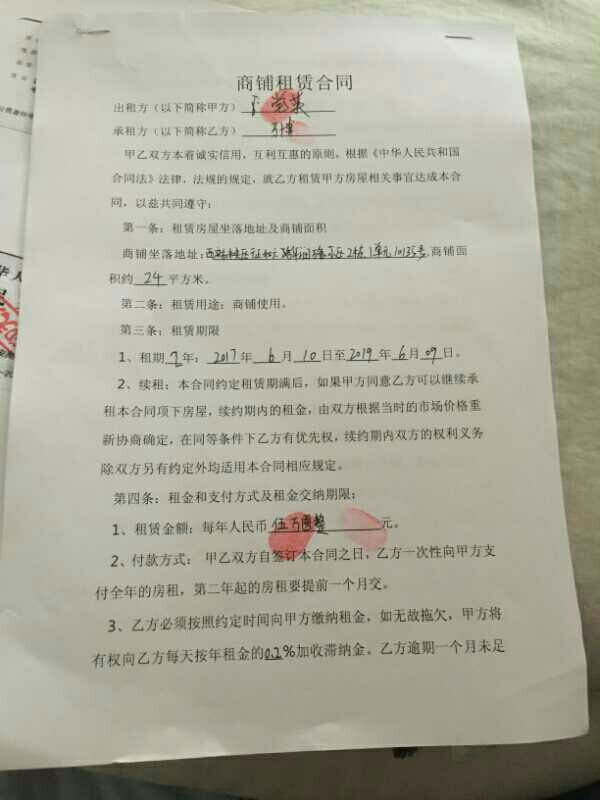 商铺租赁合同
出租方（以下简称甲方）
承租方（以下简称乙方）
甲乙双方本着诚实信用，互利互惠的原则，根据《中华人民共和国
合同法》法律，法规的规定，就乙方租赁甲方房屋相关事宜达成本合
同，以兹共同遵守：
第一条：租赁房屋坐落地址及商铺面积
商铺坐落地址：1单元10135号，商铺面
积约 24 平方米。
第二条：租赁用途：商铺使用。
第三条：租赁期限
1、租期 2 年：2017年 6 月 10 日至 2019 年 6 月 09 日。
2、续租：本合同约定租赁期满后，如果甲方同意乙方可以继续承
租本合同项下房屋，续约期内的租金，由双方根据当时的市场价格重
新协商确定，在同等条件下乙方有优先权，续约期内双方的权利义务
除双方另有约定外均适用本合同相应规定。
第四条：租金和支付方式及租金交纳期限：
1、租赁金额：每年人民币 伍万圆整 元。
2、付款方式： 甲乙双方自签订本合同之日，乙方一次性向甲方支
付全年的房租，第二年起的房租要提前一个月交。
3、乙方必须按照约定时间向甲方缴纳租金，如无故拖欠，甲方将
有权向乙方每天按年租金的0.2%加收滞纳金。乙方逾期一个月未足